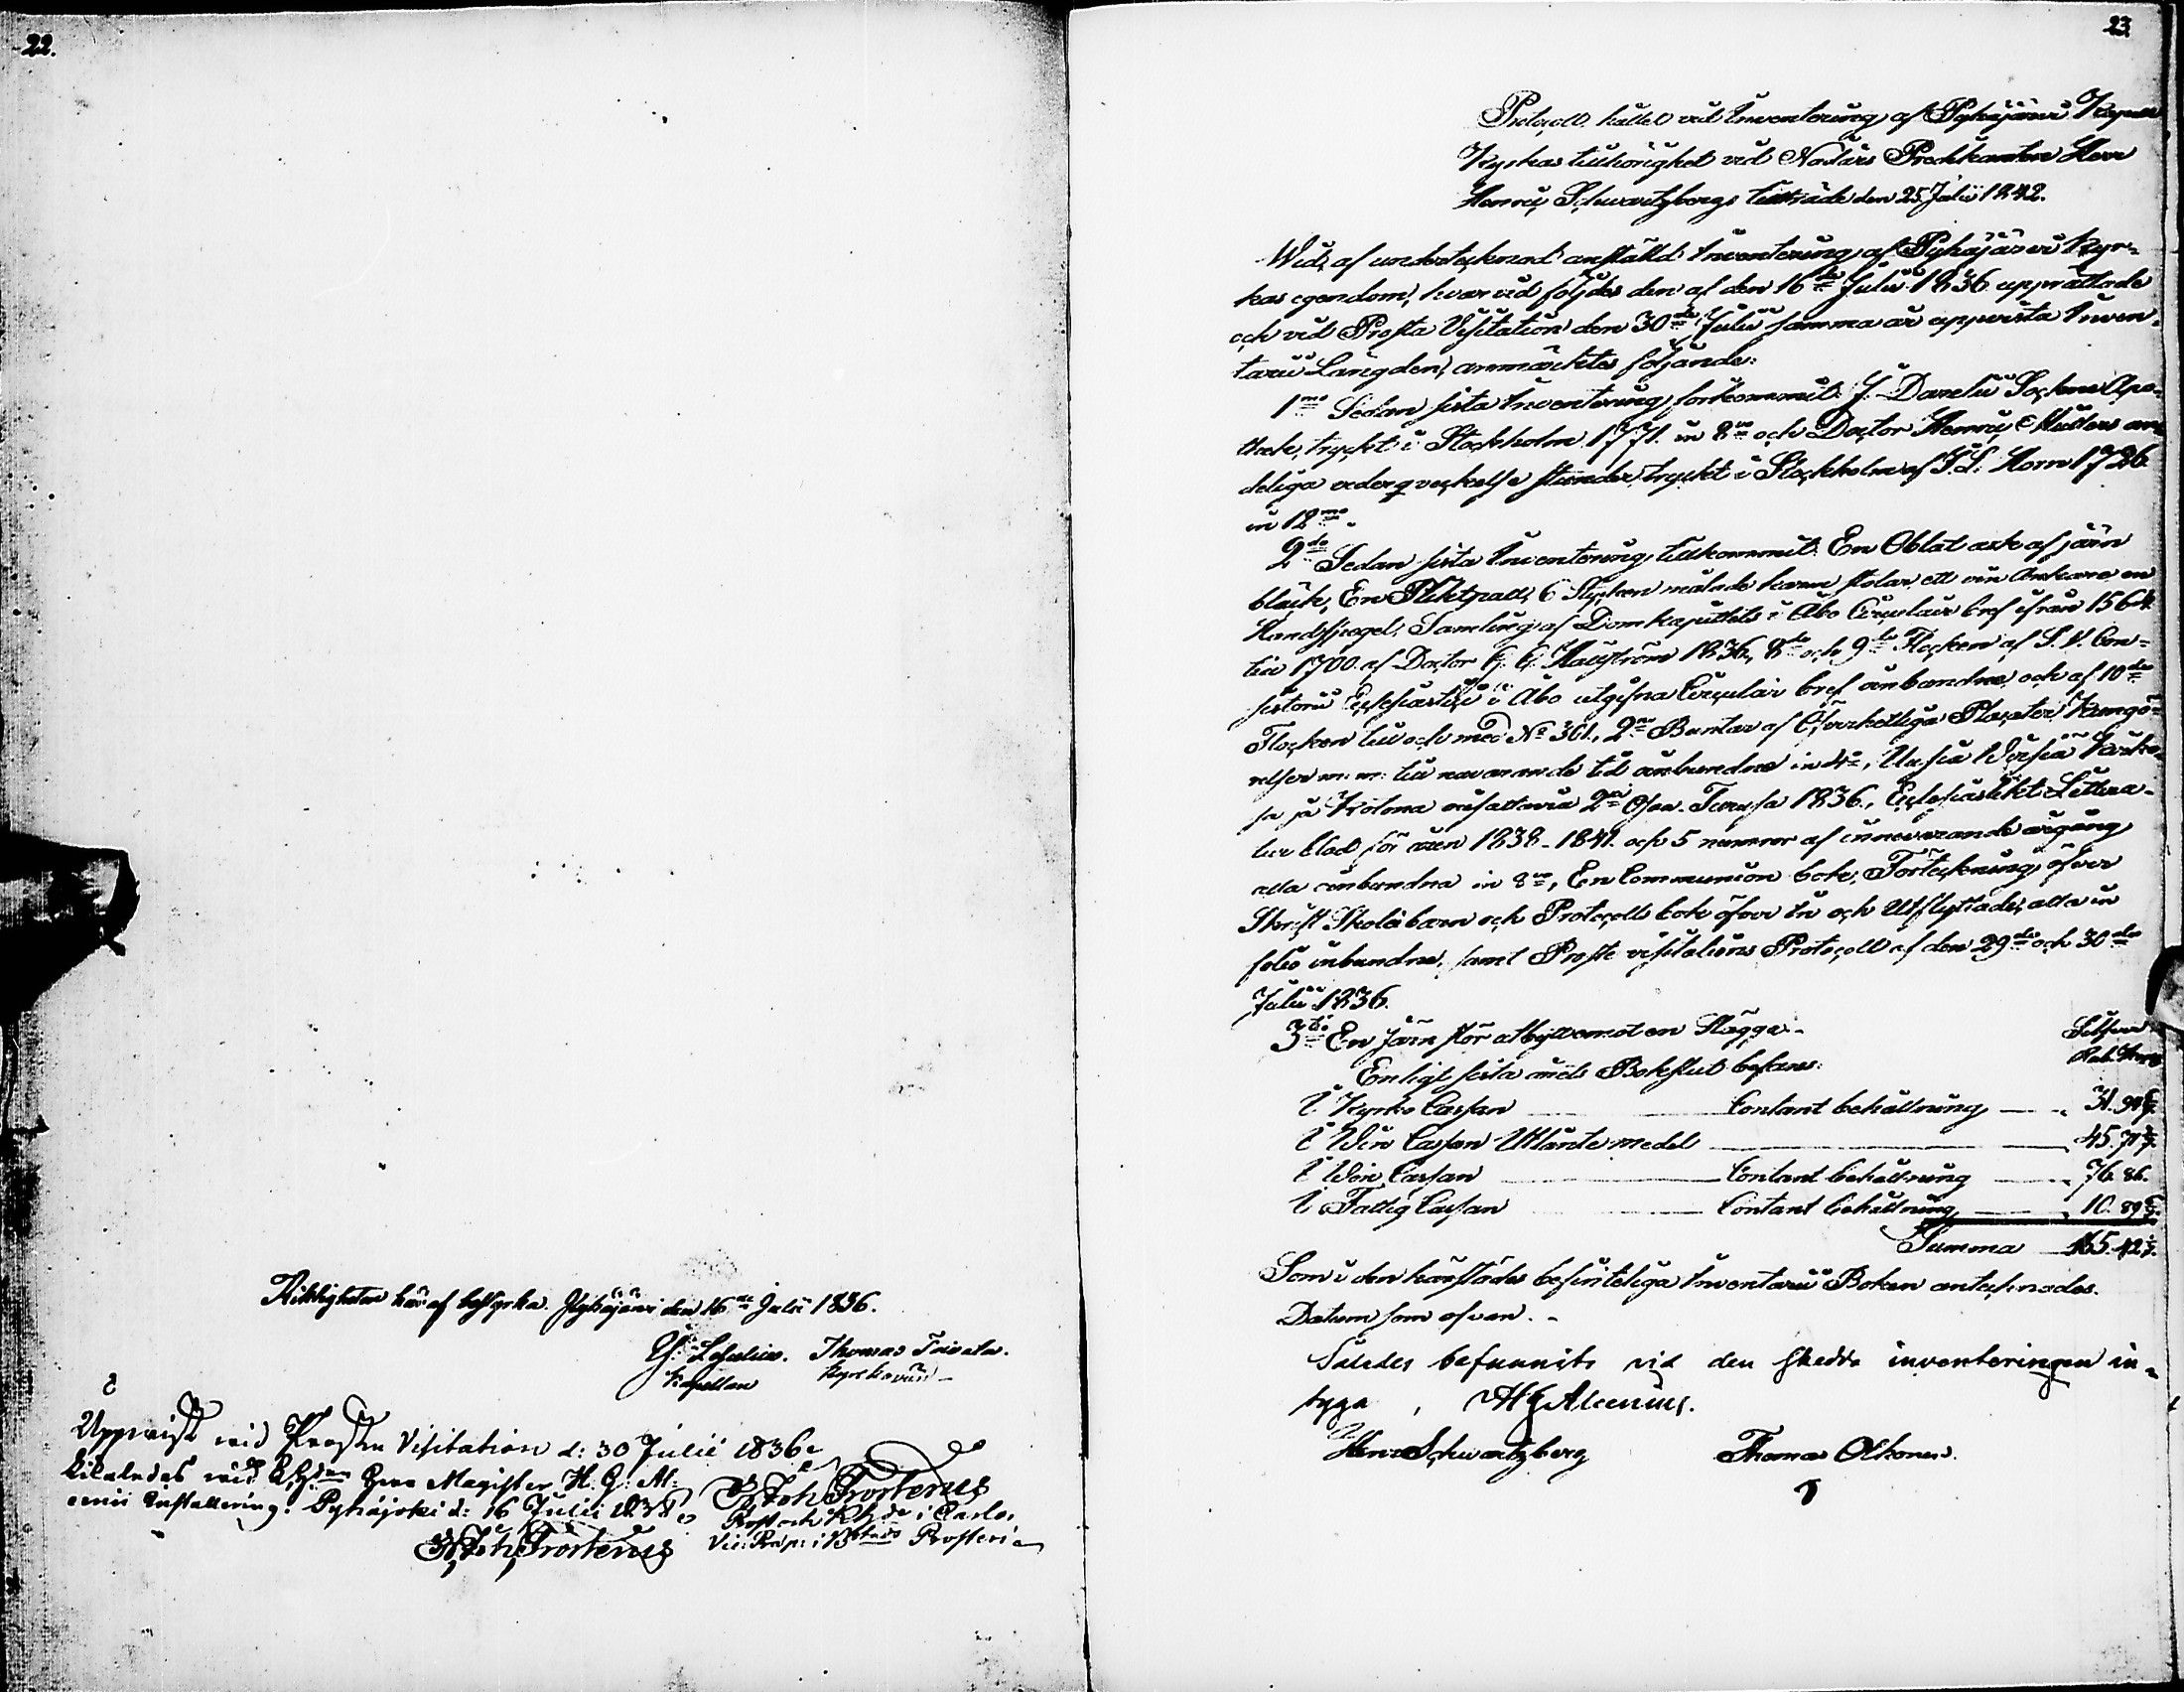 22.
Riktigheten häraf bestyrka. Pyhäjärvi den 16de Julii 1836.
Thomas
Kapellan Kyrkovärd
Uppvist vid Prosten Visitation d: 30 Julii 1836
vid Magister H. G. Al-
cenii Installering. Pyhäjoki d: 16 Julii
Joh Frosterus
Prost och Khde i
Joh Frosterus
Vice Præp: i Prosteri
23.
Protocoll hållet vid Inventering af Pyhäjärvi Kapell
Kyrkas tillhörighet vid Nådårs Predikanten Herr
Henric Schwartzbergs tillträde den 25 Julii 1842.
Wid af undertecknad anställd Inventering af Pyhäjärvi Kyr-
kas egendom, hvarvid följdes den af den 16de Julii 1836 upprättade
och vid Prosta Visitation den 30de Julii samma år uppvista Inven-
tarii Längden, anmärktes följande:
1mo Sedan sista Inventering förkommit: J. Darelii Sockne Apo-
thek, tryckt i Stockholm 1771. in 8vo och Doctor Henric Müllers an-
deliga vederqveckelse stunder tryckt i Stockholm af Horn 1726
in 12mo.
2do Sedan sista Inventering tillkommit: En Oblat ask af järn
bläck, En Pliktpall, 6 Stycken målade karm stolar, ett vin Ankare en
Handspegel, Samling af Domkapitlets i Åbo Circulair bref ifrån 1564
till 1700. af Doctor 1836, 8de och 9de Flocken af Con-
sistorii Ecclesiastici i Åbo utgifna Circulair bref oinbundne och af 10de
Flocken till och med No 361., 2ne Buntar af Öfverhetliga Placater Kungö-
relser m: m: till navarande tid oinbundne in 4to, Uusia Wirsiä Kirko-
sa ja Kotona 2n Osa. Turusa 1836., Ecclesiastikt Littera-
tur blad för åren 1838-1841. och 5 nummer af innevarande årgång
alla oinbundna in 8vo, En Communion bok, Förteckning öfver
Skrift Skolä barn och Protocolls bok öfver In och Utflyttade, alla in
folio inbundne, samt Prosta visitations Protocoll af den 29de och 30de
Julii 1836.
3tio En järn stör utbytt emot en Slägga.
Silfver
Enligt sista årets Bokslut befans:
I Kyrko Cassan Contant behållning 31.
I Win Cassan Utlånte medel 45.71
I Win Cassan Contant behållning 76.86.
I Fattig Cassan Contant behållning 10.89
Summa 165.42
Som i den härstädes befinteliga Inventarii Boken antecknades.
Datum som ofvan.
Således befunnits vid den skedda inventeringen in-
tyga, H G Alcenius.
Henr Schwartzberg Thomas Olkonen